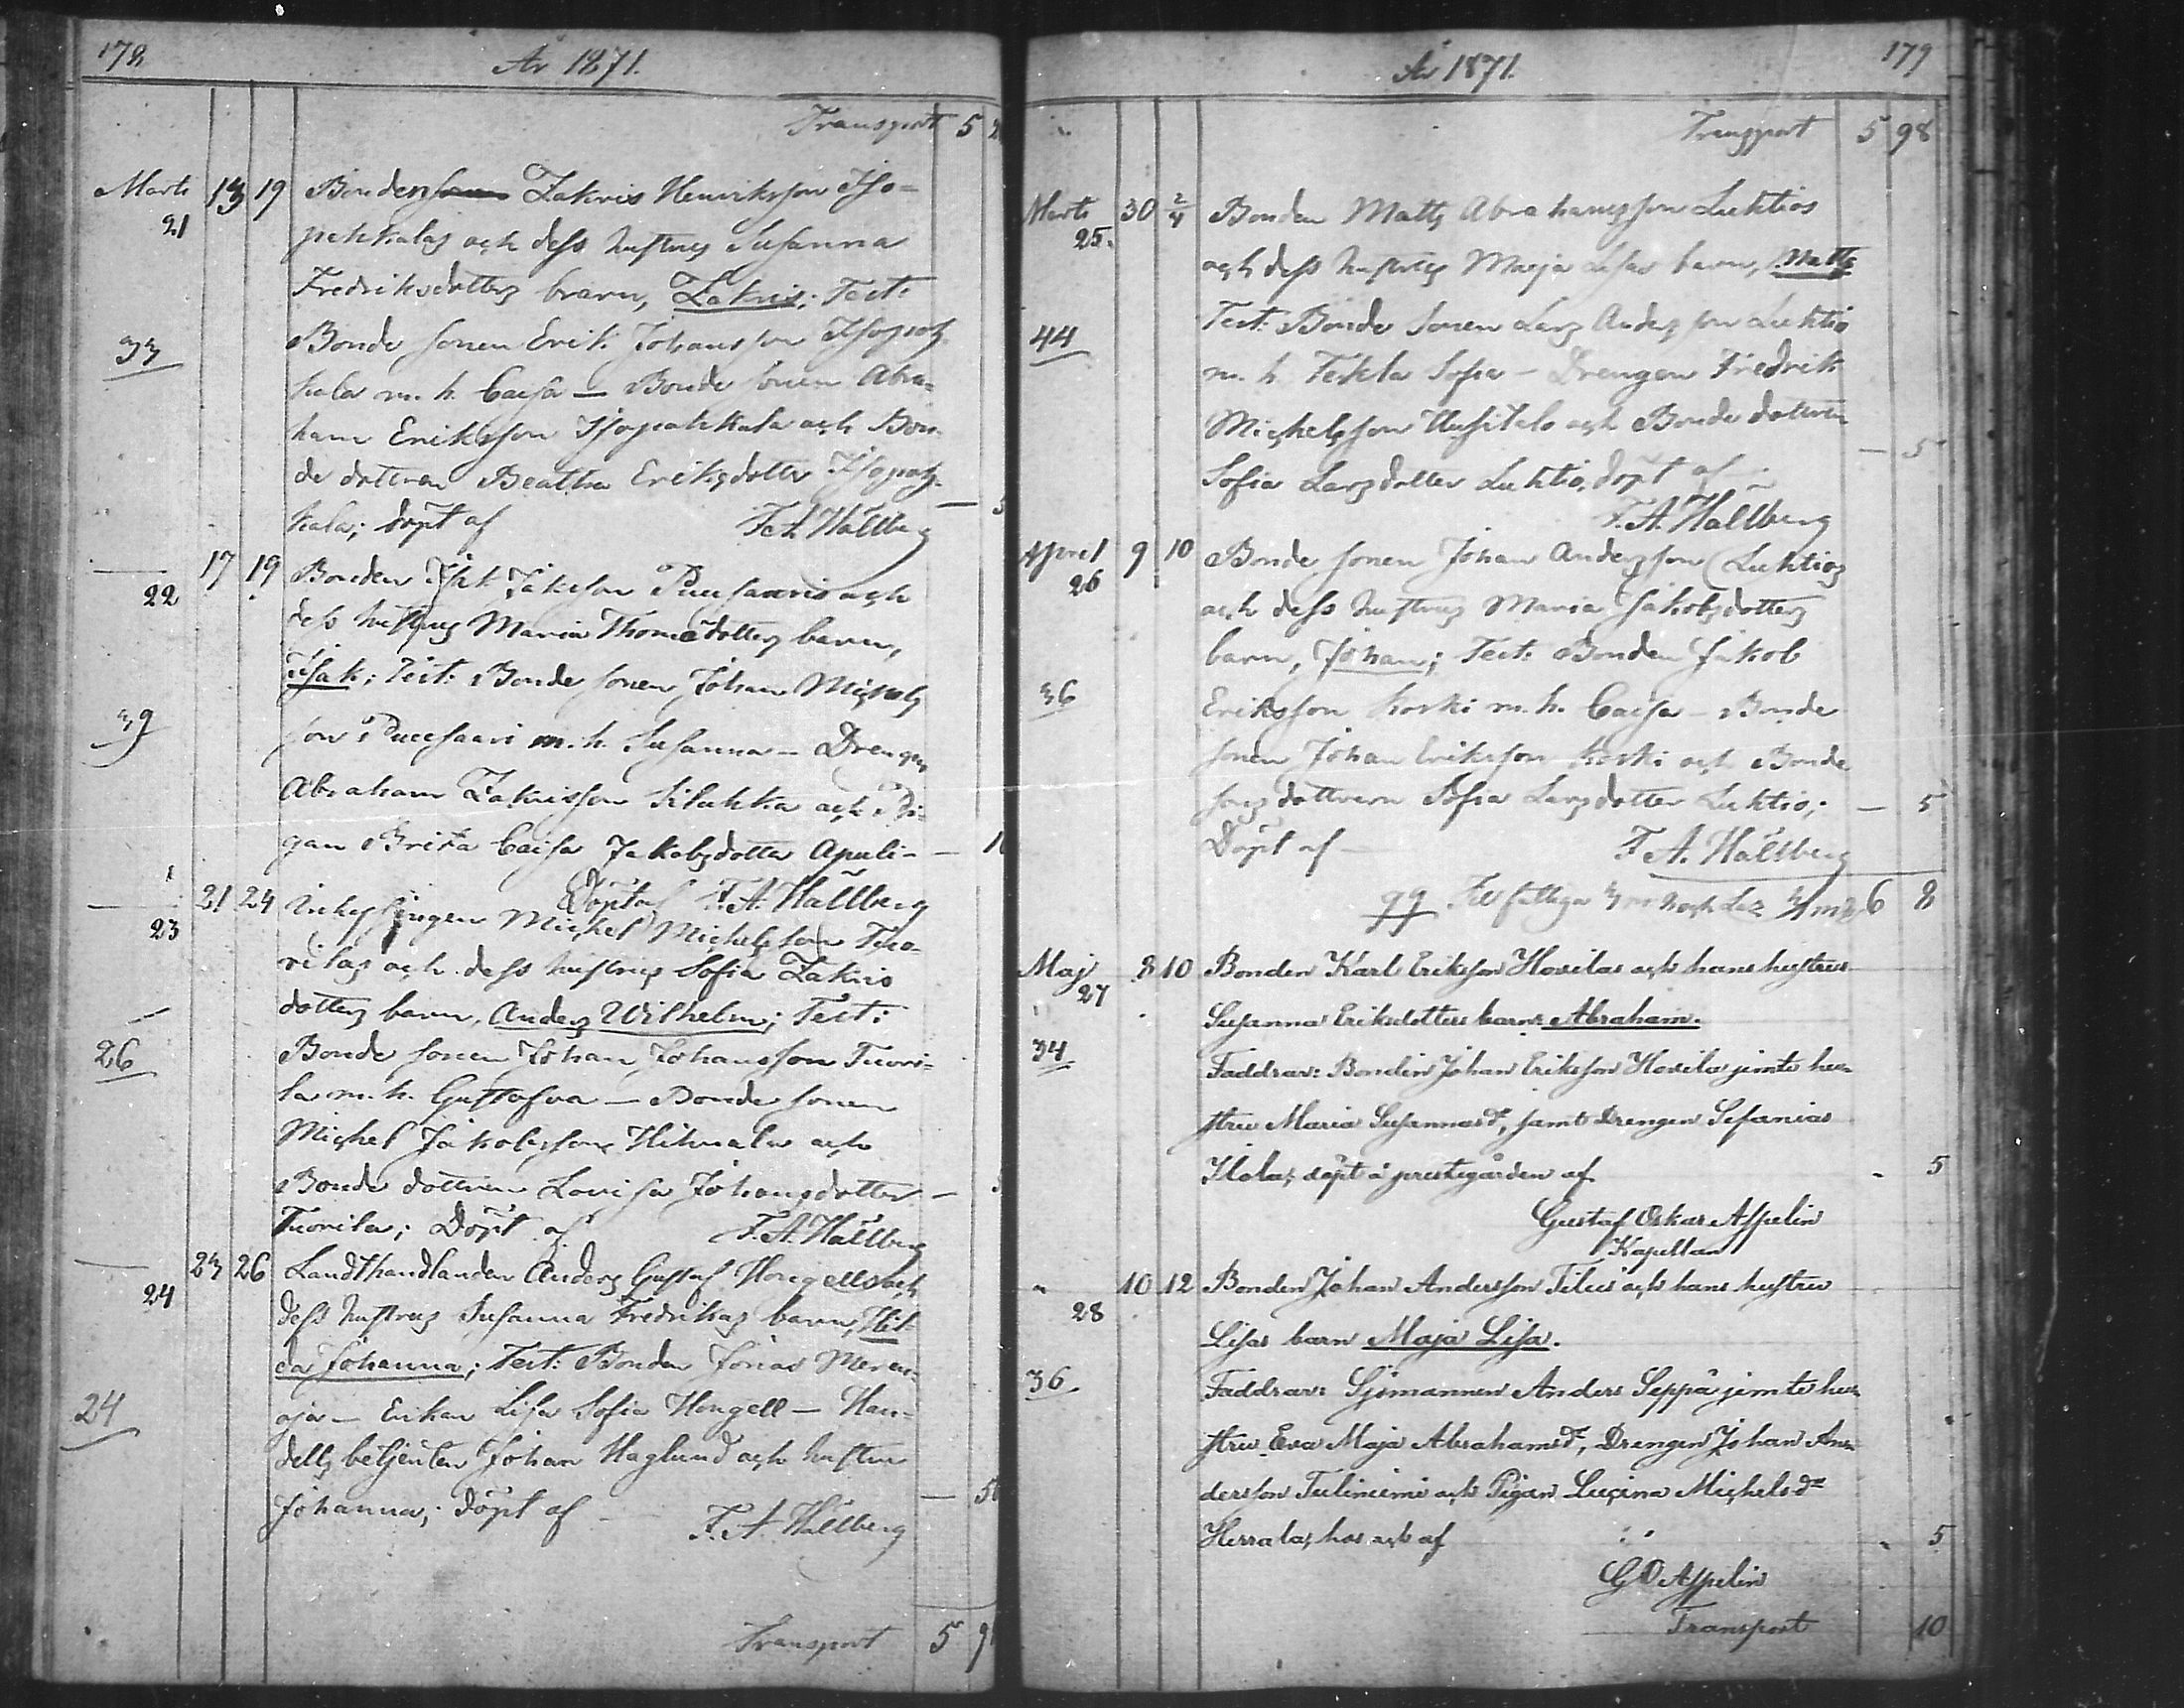 178
År 1871.
Transport 5
Marti 13 19 Bonden Zakris Henriksson Iso-
21 pehkalas och dess hustrus Susanna
Fredriksdotters barn, Zakris; Test:
33 Bonde sonen Erik Johansson Isopoh
kala m. h. Caisa – Bonde sonen Abra-
ham Eriksson Isopahkala och Bon-
de dottren Beatha Eriksdotter Isopah-
kala; döpt af F. A. Hällberg
17 19 Bonden Isak Jakssson Puusaaris och
22 dess hustrus Maria Thomædotters barn,
Isak; Test: Bonde sonen Johan Michels
39 son Puusaari m. h. Susanna – Drengen
Abraham Zakrisson Kilukka och Pi-
gan Brita Caisa Jakobsdotter Apuli –
Döpt af F. A. Hällberg
21 24 Inhysingen Michel Michelsson Tuo-
23 rilas och dess hustrus Sofia Zakris
dotters barn, Anders Wilhelm; Test:
26 Bonde sonen Johan Johansson Tuori-
la m. h. Gustafva – Bonde sonen
Michel Jakobsson Hihnala och
Bonde dottren Lovisa Johansdotter –
Tuorila; Döpt af F. A. Hällberg
23 26 Landthandlanden Anders Gustaf Hongells och
24 dess hustrus Susanna Fredrikas barn, Hil-
da Johanna; Test: Bonden Jonas Meren-
24 oja – Enkan Lisa Sofia Hongell – Han-
dels betjenten Johan Haglund och hustru
Johanna; döpt af – F. A. Hällberg
Transport 5
År 1871.
179
Transport 5 98
Marti 30 2/4 Bonden Matts Abrahamsson Luhtios
25. och dess hustrus Maja Lisas barn, Matts
44 Test: Bonde sonen Lars Andersson Luhtio
m. h. Tekla Sofia – Drengen Fredrik
Michelsson Uusitalo och Bonde dottren
Sofia Larsdotter Luhtio, döpt af – 5
F. A. Hällberg
April 9 10 Bonde sonen Johan Andersson Luhtios
26 och dess hustrus Maria Jakobsdotters
barn, Johan; Test: Bonden Jakob
36 Eriksson Koski m. h. Caisa – Bonde
sonen Johan Eriksson Koski och Bonde
sons dottren Sofia Larsdotter Luhtio; – 5
Döpt af – F. A. Hällberg
6 8
Maj 8 10 Bonden Karl Eriksson Hovilas och hans hustrus
27 Susanna Eriksdotters barn Abraham.
34 Faddrar: Bonden Johan Eriksson Hovila jemte hu-
stru Maria Susannasdr, samt Drengen Sefanias
Ilola; döpt å prestegården af - 5
Gustaf Oskar Aspelin
Kapellan
" 10 12 Bonden Johan Andersson Tilus och hans hustrus
28 Lisas barn Maja Lisa.
36 Faddrar: Sjömannen Anders Seppä jemte hu-
stru Eva Maja Abrahamsdr, Drengen Johan An-
dersson Tuliniemi och Pigan Lucina Michelsdr
Herrala; hos och af " 5
G O Aspelin
Transport 10